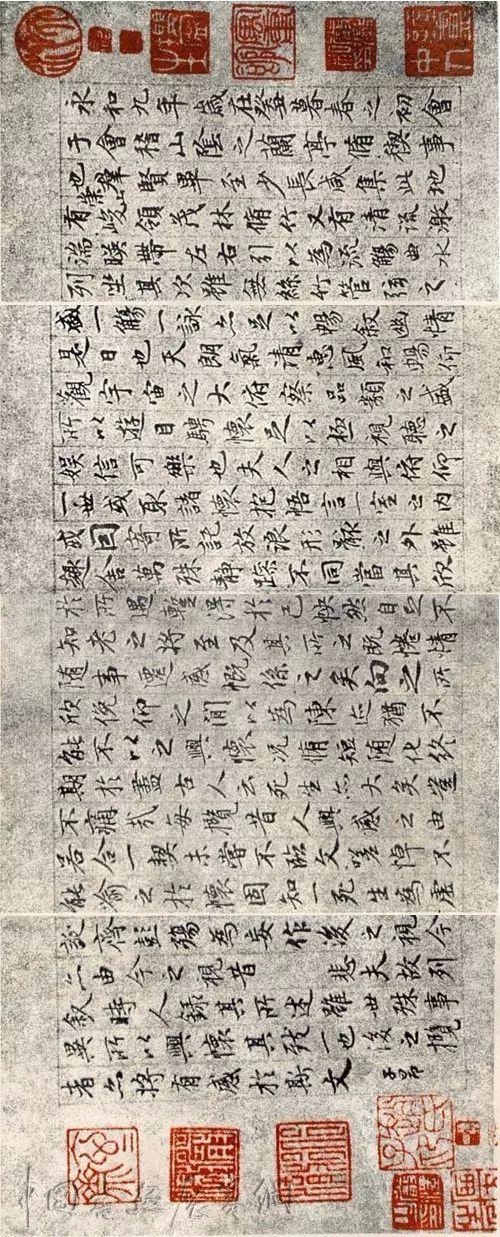 永和九年歲在癸丑暮春之初會
于會稽山陰之蘭亭脩稧事
也羣賢畢至少長咸集此地
有崇山峻領茂林脩竹又有清流激
湍暎帶左右引以為流觴曲水
列坐其次雖無絲竹管弦之
盛一觴一詠亦足以暢敘幽情
是日也天朗氣清惠風和暢仰
觀宇宙之大俯察品類之盛
所以遊目騁懷足以極視聽之
娛信可樂也夫人之相與俯仰
一世或取諸懷抱悟言一室之內
或因寄所託放浪形骸之外雖
趣舍萬殊靜躁不同當其欣
於所遇暫得於己怏然自足不
知老之將至及其所之既惓情
隨事遷感慨係之矣向之所
欣俛仰之間以為陳迹猶不
能不以之興懷況脩短隨化終
期於盡古人云死生亦大矣豈
不痛哉每攬昔人興感之由
若合一契未嘗不臨文嗟悼不
能喻之於懷固知一死生為虛
誕齊彭殤為妄作後之視今
亦由今之視昔悲夫故列
敘時人錄其所述雖世殊事
異所以興懷其致一也後之攬
者亦將有感於斯文
子昂